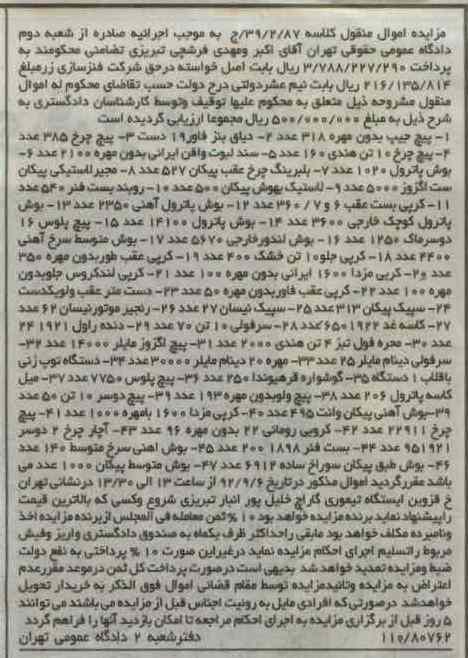 مزایده اموال منقول کلاسه ۳۹/۲/۸۷/ج به موجب اجرائیه صادره از شعبه دوم
دادگاه عمومی حقوقی تهران آقای اکبر ومهدی فرشچی تبریزی تضامنی محکومند به
پرداخت ۳/۷۸۸/۲۲۷/۲۹۰ ریال بابت اصل خواسته درحق شرکت فنرسازی زرمبلغ
۲۱۶/۱۳۵/۸۱۴ ریال بابت نیم عشردولتی درج دولت حسب تقاضای محکوم له اموال
منقول مشروحه ذیل متعلق به محکوم علیها توقیف وتوسط کارشناسان دادگستری به
شرح ذیل به مبلغ ۵۰۰/۰۰۰/۰۰۰ ریال مجموعا ارزیابی گردیده است
۱- پیچ جیب بدون مهره ۳۱۸ عدد ۲- دیاق بنز فاور۱۹ دست ۳- پیچ چرخ ۳۸۵ عدد
۴- پیچ چرخ ۱۰ تن هندی ۱۶۰ عدد ۵- سند لبوت وافن ایرانی بدون مهره ۲۱۰۰ عدد ۶-
بوش پاترول ۱۰۲۰ عدد ۷- بلبرینگ چرخ عقب پیکان ۵۲۷ عدد ۸- مجیر لاستیکی پیکان
ست اگزوز ۵۰۰۰ عدد ۹- لاستیک بهوش پیکان ۵۰۰ عدد ۱۰- روبند بست فنر ۵۴۰ عدد
۱۱- کرپی بست عقب ۶ و ۷ / ۳۶۰ عدد ۱۲- بوش پاترول آهنی ۲۳۵۰ عدد ۱۳- بوش
پاترول کوچک خارجی ۳۶۰۰ عدد ۱۴- بوش پاترول ۱۴۱۰۰ عدد ۱۵- پیچ پلوس ۱۶
دوسرماک ۱۲۵۰ عدد ۱۶- بوش لندورخارجی ۵۶۷۰ عدد ۱۷- بوش متوسط سرخ آهنی
۲۴۰۰ عدد ۱۸- کرپی جلو۱۰ تن خشک ۴۰۰ عدد ۱۹- کرپی عقب طوربدون مهره ۳۵۰
عدد ۲۰- کرپی مزدا ۱۶۰۰ ایرانی بدون مهره ۱۰۰ عدد ۲۱- کرپی لندکروس جلوبدون
مهره ۱۰۰ عدد ۲۲- کرپی عقب فاوربدون مهره ۵۰ عدد ۲۳- دست متر عقب ولویکدست
۲۴- سیبک پیکان ۳۱۳ عدد ۲۵- سیبک نیسان ۲۷ عدد ۲۶- رنجیر موتورنیسان ۶۲ عدد
۲۷- کاسه غد ۶۵۰۱۹۲۲ عدد ۲۸- سرفولی ۱۰ تن ۷۰ عدد ۲۹- دنده راول ۱۹۲۱ ۲۴
عدد ۳۰- محره فول تیز ۴ تن هندی ۲۰۰۰ عدد ۳۱- پیچ اگزوز مایلر ۱۴۰۰۰ عدد ۳۲-
سرفولی دینام مایلر ۲۵ عدد ۳۳- مهره ۲۰ دینام مایلر ۳۰۰۰۰ عدد ۳۴- دستگاه توپ زنی
باقلاب ۱ دستگاه ۳۵- گوشواره قرهیوندا ۲۵۰ عدد ۳۶- پیچ پلوس ۷۷۵۰ عدد ۳۷- میل
کاسه پاترول ۲۰۶ عدد ۳۸- پیچ ولوبدون مهره ۱۹۳ عدد ۳۹- پیچ دوسر ۱۰ تن ۵۰ عدد
۳۹-بوش آهنی پیکان وانت ۴۹۵ عدد ۴۰- کرپی مزدا ۱۶۰۰ بامهره ۱۰۰۰ عدد ۴۱- پیچ
چرخ ۲۲۹۱۱ عدد ۴۲- کروپی رومانی ۲۲ بدون مهره ۹۶ عدد ۴۳- آچار چرخ ۲ دوسر
۹۵۱۹۲۱ عدد ۴۴- بست فنر ۱۸۹۸ ۲۰۰ عدد ۴۵- بوش اهنی سرخ متوسط ۱۴۰ عدد
۴۶- بوش طبق پیکان سوراخ ساده ۶۹۱۲ عدد ۴۷- بوش متوسط پیکان ۱۰۰۰ عدد می
باشد مقررگردید اموال مذکور درتاریخ ۹۲/۹/۶ از ساعت ۱۳ الی ۱۳/۳۰ درنشانی تهران
خ قزوین ایستگاه تیموری گاراج خلیل پور انبار تبریزی شروع وکسی که بالاترین قیمت
راپیشنهاد نماید برنده مزایده خواهد بود ۱۰ % ثمن معامله فی المجلس ازبرنده مزایده اخذ
ونامبرده مکلف خواهد بود مابقی راحداکثر ظرف یکماه به صندوق دادگستری واریز وفیش
مربوط راتسلیم اجرای احکام مزایده نماید درغیراین صورت ۱۰ % پرداختی به نفع دولت
ضبط ومزایده تمدید خواهد شد بدیهی است درصورت پرداخت کل ثمن درموعد مقررعدم
اعتراض به مزایده وتائیدمزایده توسط مقام قضائی اموال فوق الذکر به خریدار تحویل
خواهدشد درصورتی که افرادی مایل به رونیت اجناس قبل از مزایده می باشند می توانند
۵ روز قبل از برگزاری مزایده به اجرای احکام مراجعه تا امکان بازدید آنها را فراهم گردد
۱۱۰/۸۰۷۶۲ دفترشعبه ۲ دادگاه عمومی تهران